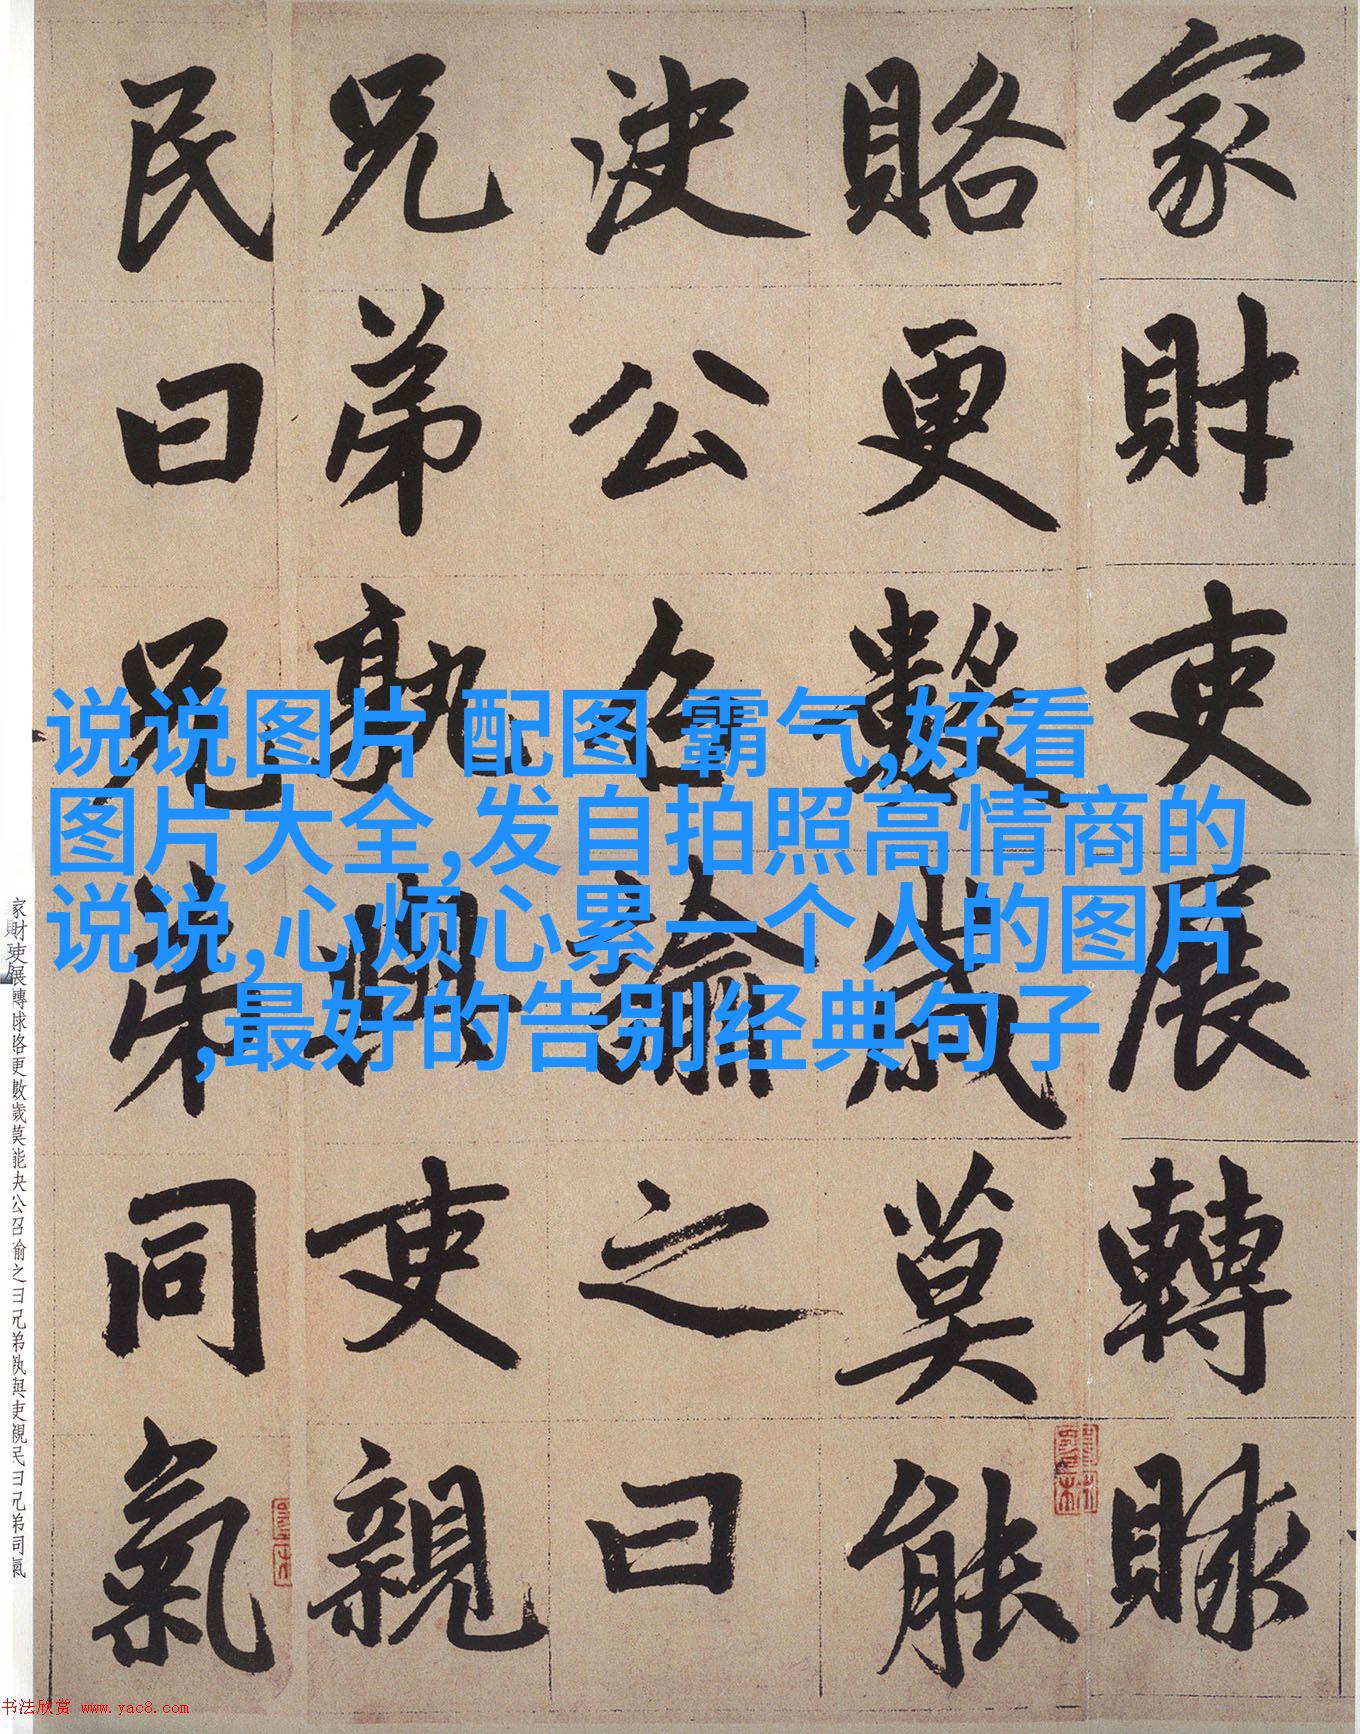 家財吏展轉賕
賂更數歲莫能
決公召諭之曰
兄弟孰與吏親
民曰兄弟同氣
说说图片 配图 霸气,好看
图片大全,发自拍照高情商的
说说,心烦心累一个人的图片
,最好的告别经典句子
家財吏展轉賕賂更數歲莫能决公召諭之曰兄弟孰與吏親民曰兄弟同氣
书法欣赏 www.yac8.com